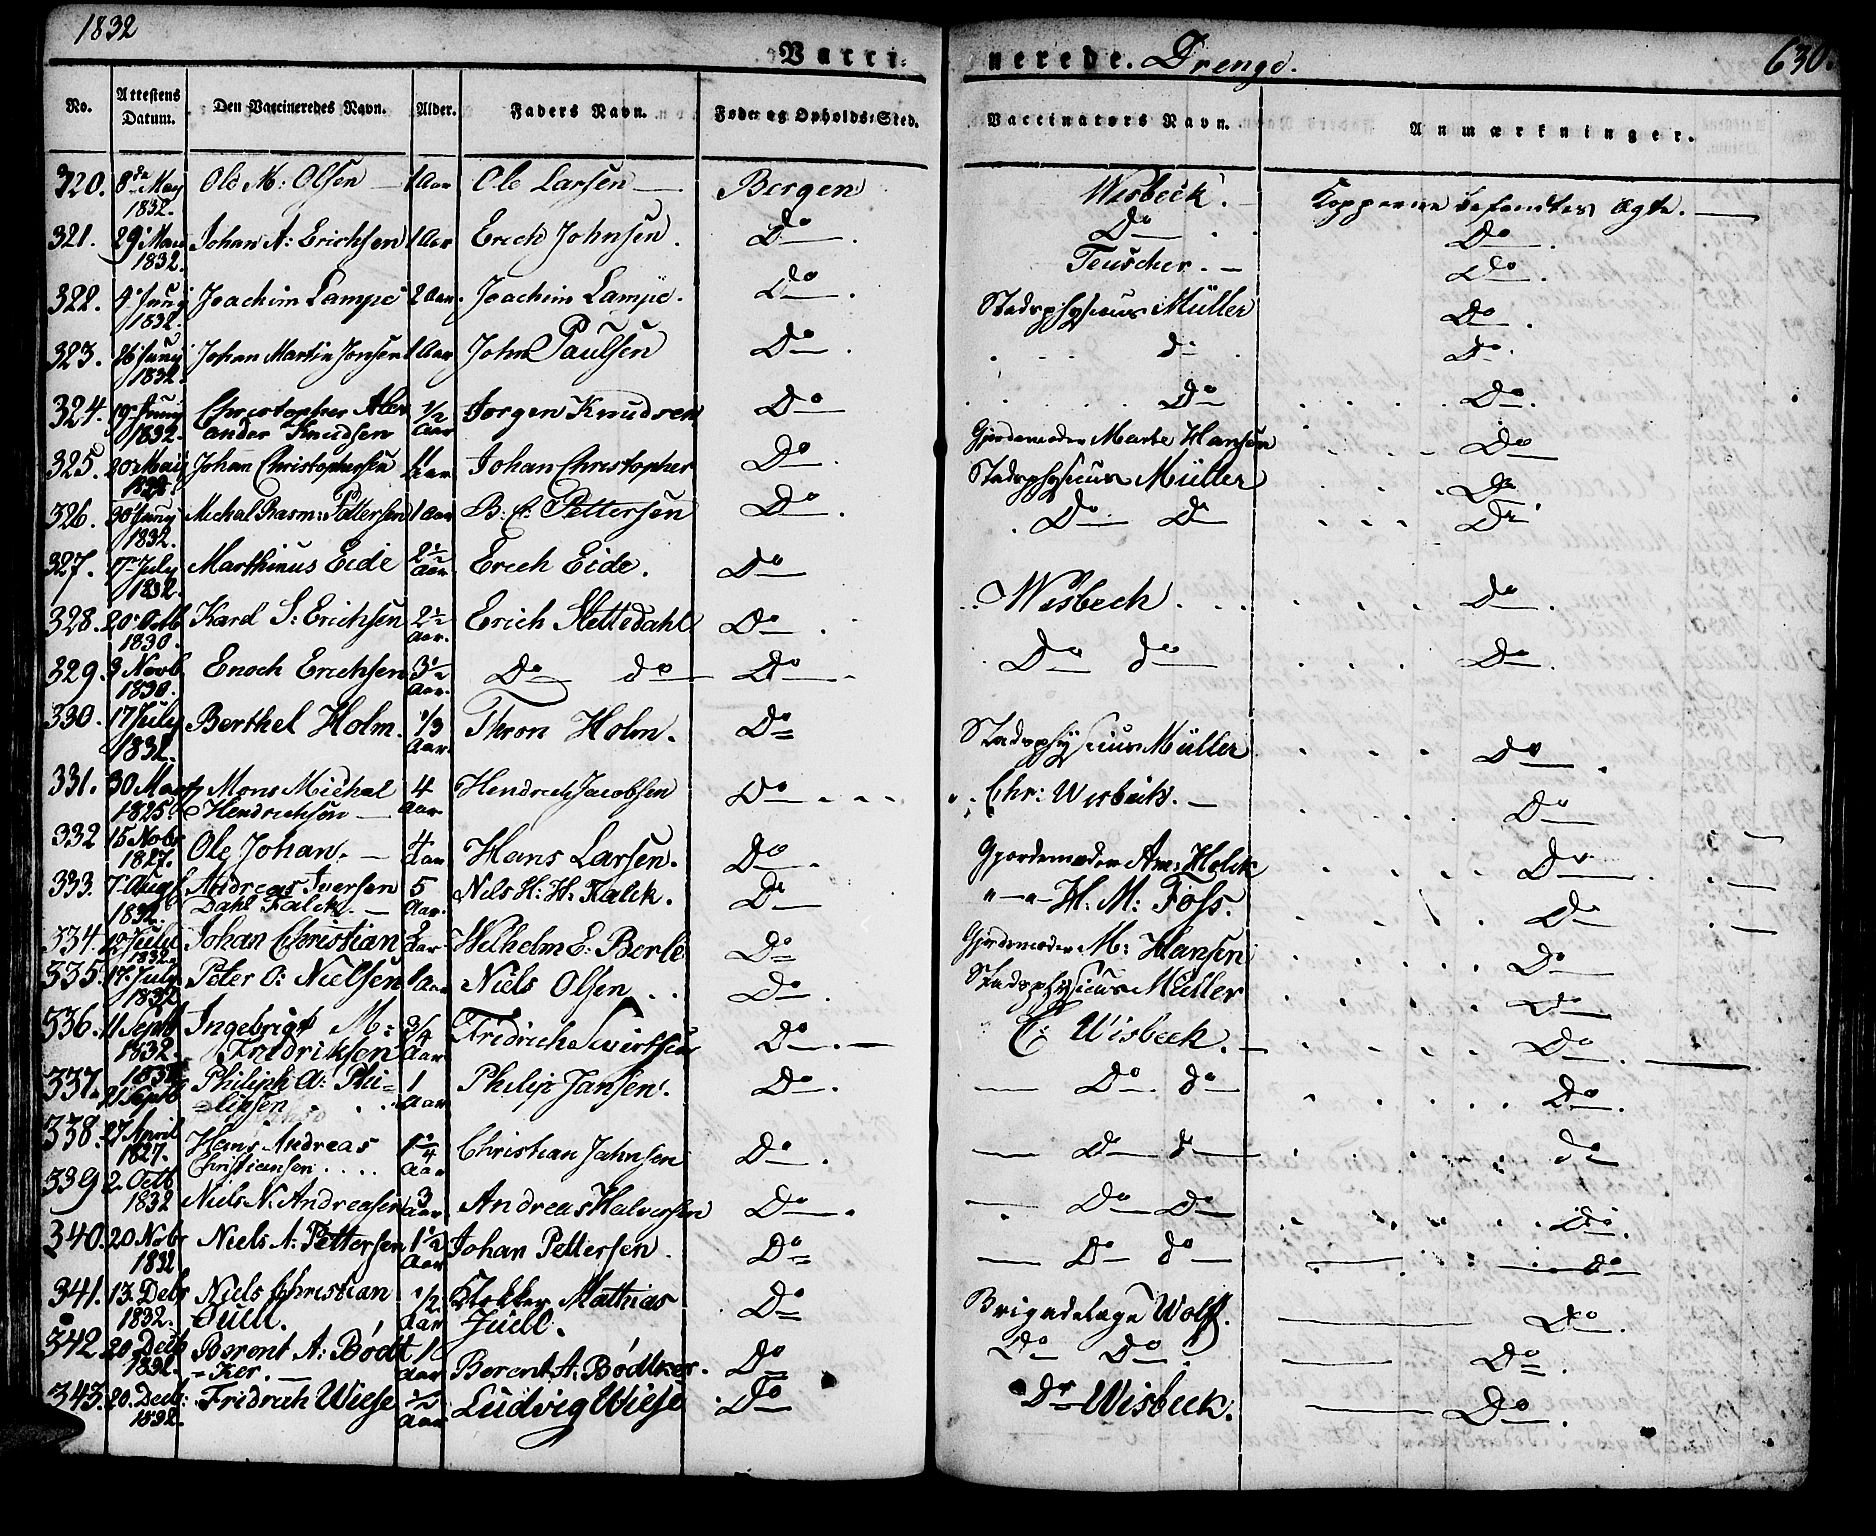 1832
Vacci- nerede. Drenge. 630.
No. Attestens Datum. Den Vaccineredes Navn. Alder. Faders Navn. Føde- og Opholds-Sted. Vaccinators Navn. Anmærkninger.
320. 8de May 1832. Ole M: Olsen 1 Aar Ole Larsen Bergen Wisbeck. Kopperne befandtes ægte.
321. 29 May 1832. Johan A: Erichsen 1 Aar Erich Johnsen. Do Do Do
322. 4 Juny 1832. Joachim Lampe 2 Aar. Joachim Lampe. Do Teuscher. Do
323. 26 Juny 1832. Johan Martin Jonsen 1 Aar John Paulsen Do Stadsphysicus Müller Do
324. 19 Juny 1832. Christopher Alexander Knudsen 1/2 Aar Jørgen Knudsen Do do Do
325. 20 May 1832. Johan Christophersen Aar Johan Christopher Do Do Do
326. 30 Juny 1832. Michal Rasm: Pettersen 1 Aar B: A: Pettersen Do Gjordemoder Marte Hansen Do
327. 17 July 1832. Marthinus Eide 2 1/2 Aar Erich Eide. Do Stadsphysicus Müller Do
Do Do Do
328. 20 Octb 1830. Karel S: Erichsen 2 1/2 Aar. Erich Slettedahl Do Wisbech Do
329. 3 Novb 1830. Enoch Erichsen 3 1/2 Aar. Do do Do Do do Do
330. 17 July 1832. Berthel Holm. 1/3 Aar. Thron Holm. Do Stadsphysicus Müller Do
331. 30 Mart 1825. Mons Michal Hendrichsen 4 Aar Hendrich Jacobsen Do Chr: Wisbeck. Do
332 15 Nobr 1827. Ole Johan. 4 Aar Hans Larsen. Do Gjordemoder Am: Holck Do
333. 7 Augst 1832. Andreas Iversen Dahl Falck. 5 Aar. Nels H: H. Falck. Do H. M: Foss. Do
334. 12 July 1832. Johan Christian Aar Wilhelm E: Berle Do Gjordemoder M: Hansen Do
335. 17. July 1832 Peter O: Nielsen 1 Aar Niels Olsen Do Stadsphysicus Müller Do
336. 11 Septb 1832. Ingebrigt M: Fridriksen 3/4 Aar Fridrich Siwertsen Do C: Wisbeck. Do
337. 1832 21 Septb Philiph A: Phi-lipsen 1 Aar Philip Jansen. Do Do do Do
338. 27 April 1827. Hans Andreas Christiansen 1 1/4 Aar Christian Jahnsen Do Do do do
339 2. Octb 1832 Niels N. Andreasen 3 Aar Andreas Halvorsen Do Do Do Do
340. 20 Nobr 1832 Niels A: Pettersen 1 1/2 Aar Johan Pettersen. Do Do do do
341. 13. Debr 1832. Niels Christian Juell. 1/2 Aar Klokker Mathias Juell. Do Brigadelæge Wolff. Do
342 20 Decb 1832. Berent A: Bødt-ker. 1 Aar Berent A: Bødtker. Do Do Do Do
343. 20. Decb: 1832. Fridrich Wiese 1/2 Aar Ludvig Wiese Do Dr Wisbeck. Do